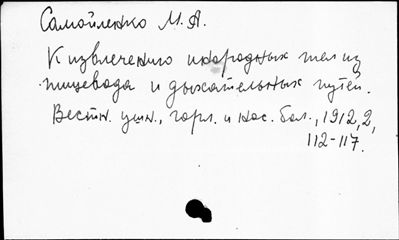 Самойленко М.А.
К извлечению инородных тел из
пищевода и дыхательных путей.
Вестн. ушн., горл. и нос. бол., 1912, 2,
112-117.